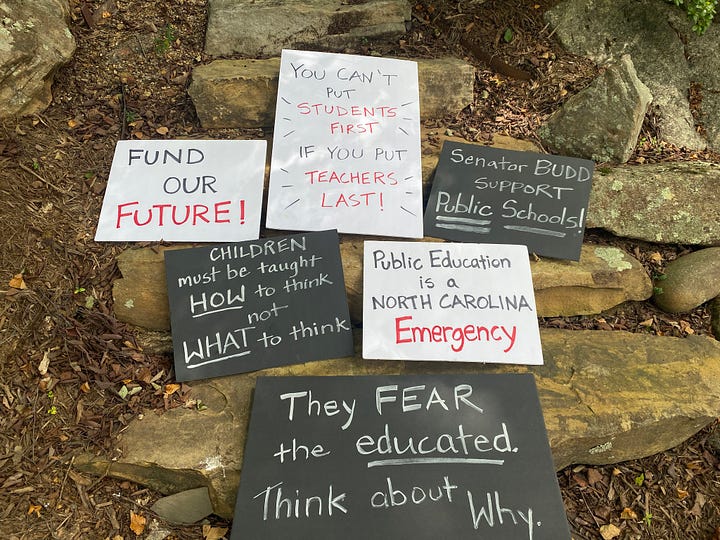 YOU CAN'T
PUT
STUDENTS
FIRST
IF YOU PUT
TEACHERS
LAST!
FUND
OUR
FUTURE!
Senator BUDD
SUPPORT
Public Schools!
CHILDREN
must be taught
HOW to think
not
WHAT to think
Public Education
is a
NORTH CAROLINA
Emergency
They FEAR
the educated.
Think about Why.